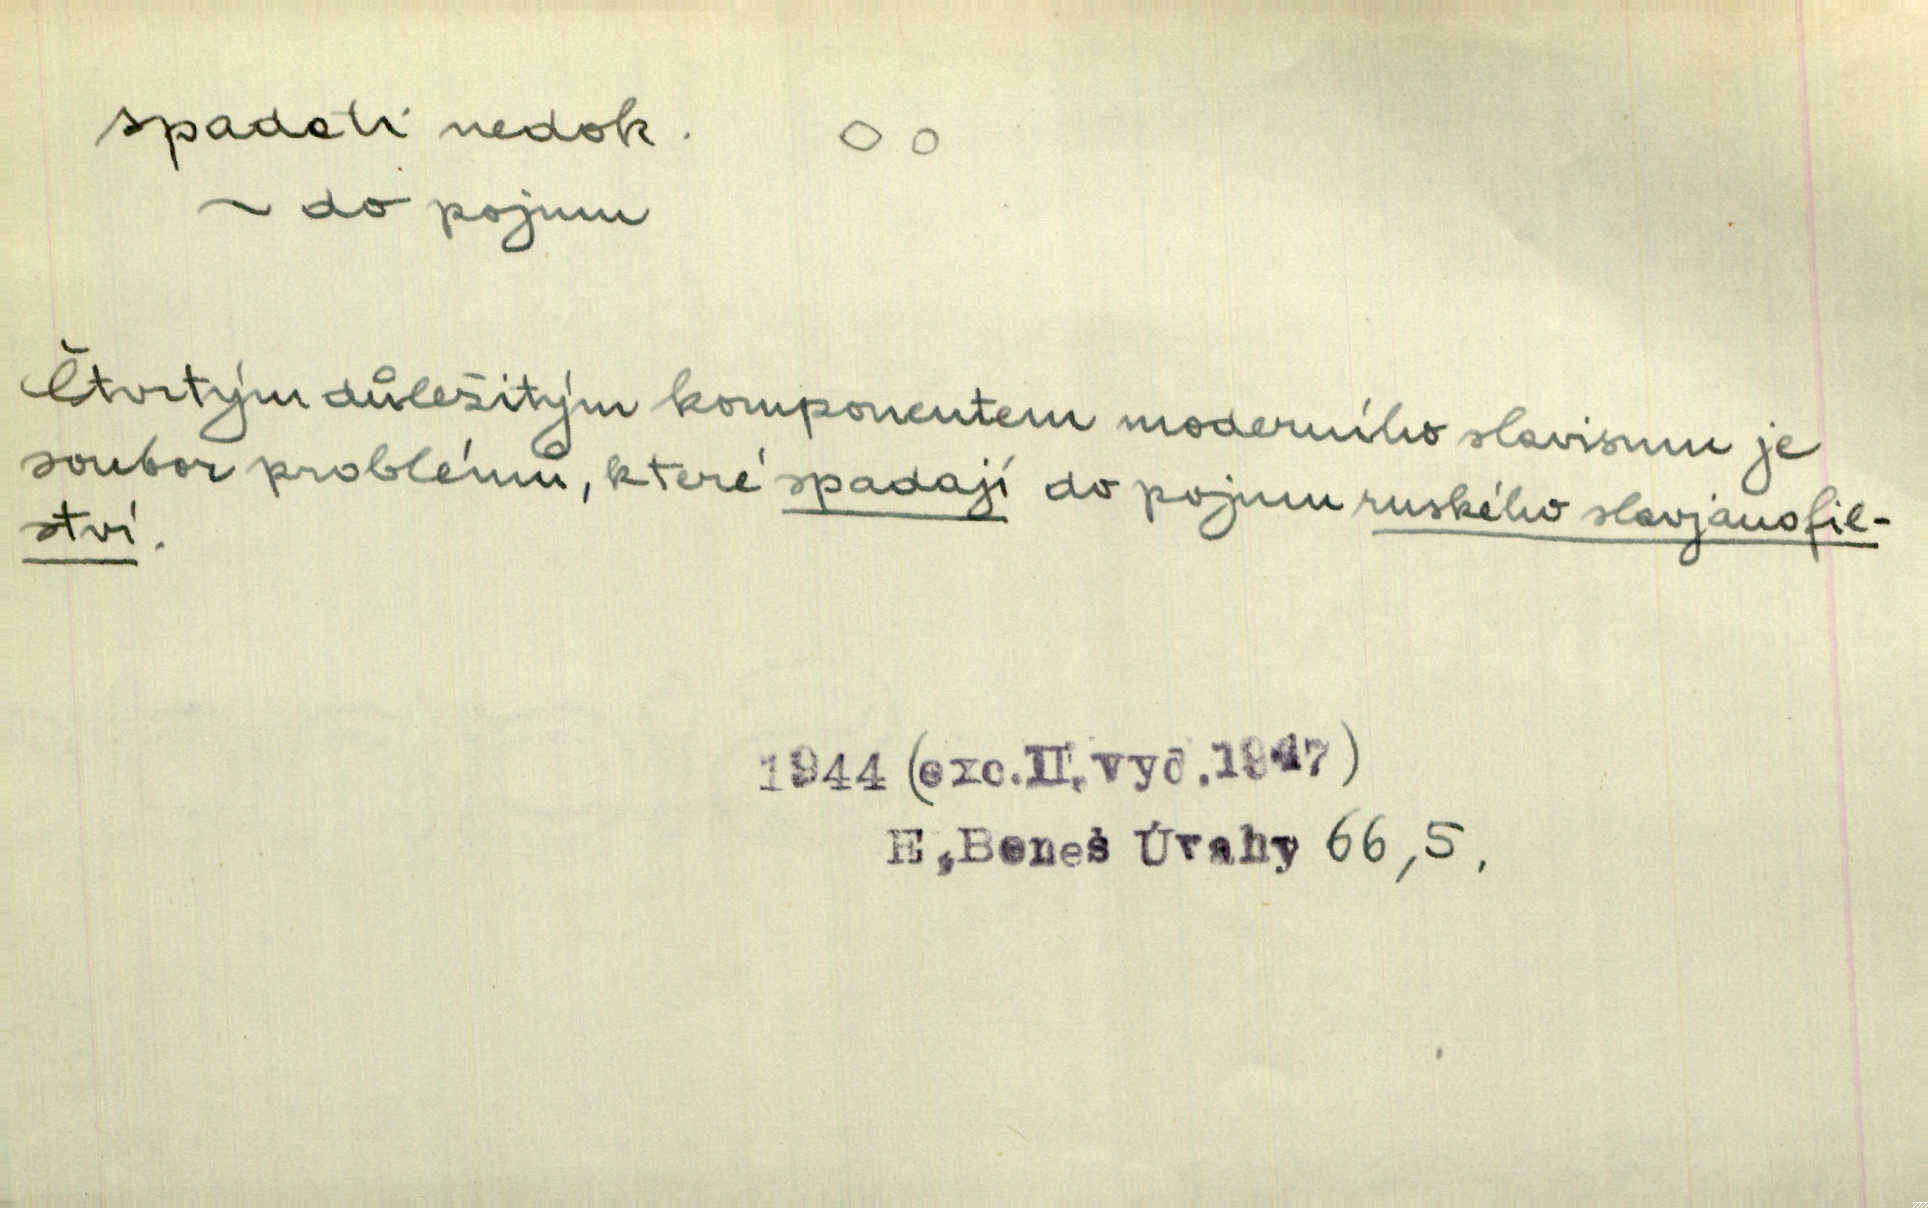 spadati nedok. oo
~ do pojmu
Čtvrtým důležitým komponentem moderního slavismu je
soubor problémů, které spadají do pojmu ruského slavjanofil-
ství.
1944 (exc.II.vyd.1947)
E.Beneš Úvahy 66,5.